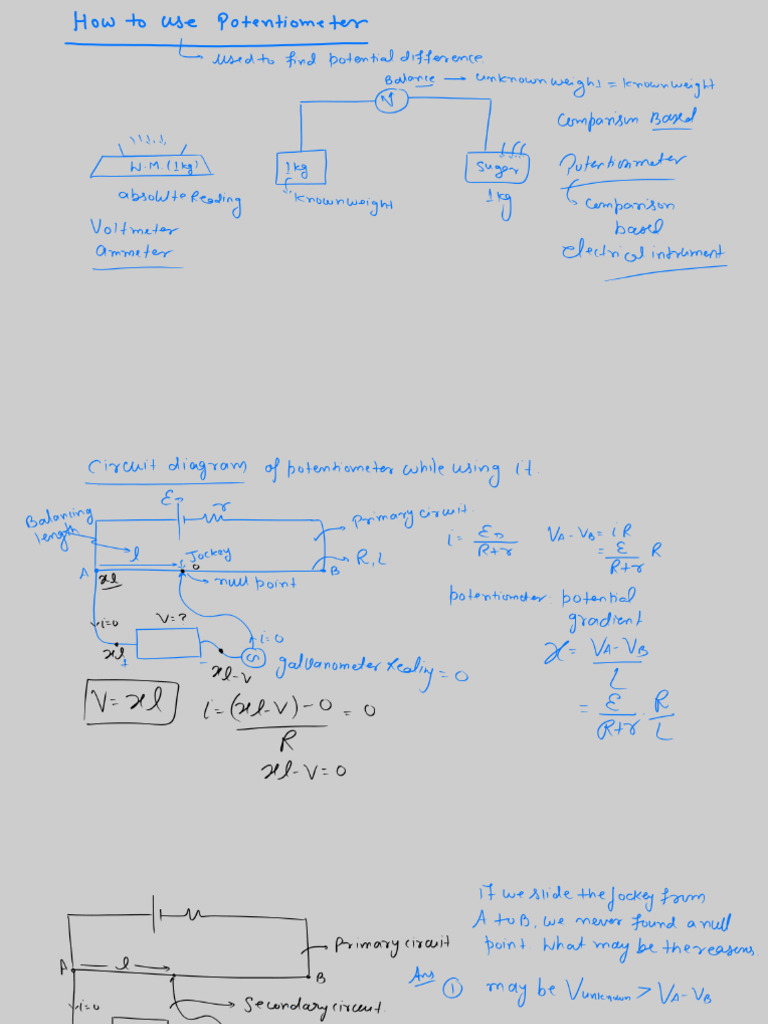 How to use Potentiometer
used to find potential difference.
Balance → unknown weight = known weight
N
comparison Based
W.M (1kg)
1kg
sugar
Potentiometer
absolute Reading
known weight
1kg
comparison
based
electrical instrument
Voltmeter
ammeter
Circuit diagram of potentiometer while using it.
Balancing
length
E₀
r
Primary circuit.
i = E₀/(R+r)
VA - VB = iR
= E/(R+r) R
l
Jockey
0
R, L
A
xl
null point
B
potentiometer: potential
gradient
i=0
V=?
i=0
x = (VA - VB)/L
xl
+
-
xl-V
G
galvanometer reading = 0
V = xl
i = ((xl-V) - 0)/R = 0
= E/(R+r) · R/L
xl - V = 0
If we slide the Jockey from
A to B, we never found a null
point what may be the reasons.
Primary circuit
A
l
B
Ans ① may be Vunknown > VA - VB
i=0
Secondary circuit.